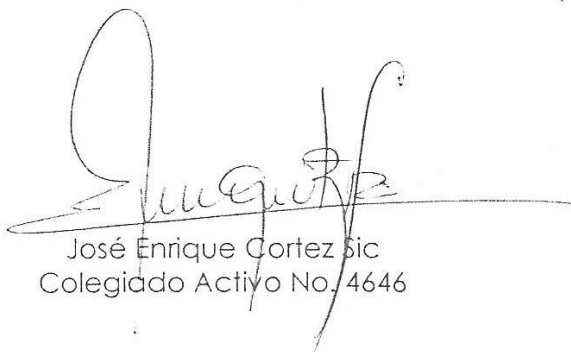 José Enrique Cortez Sic
Colegiado Activo No. 4646